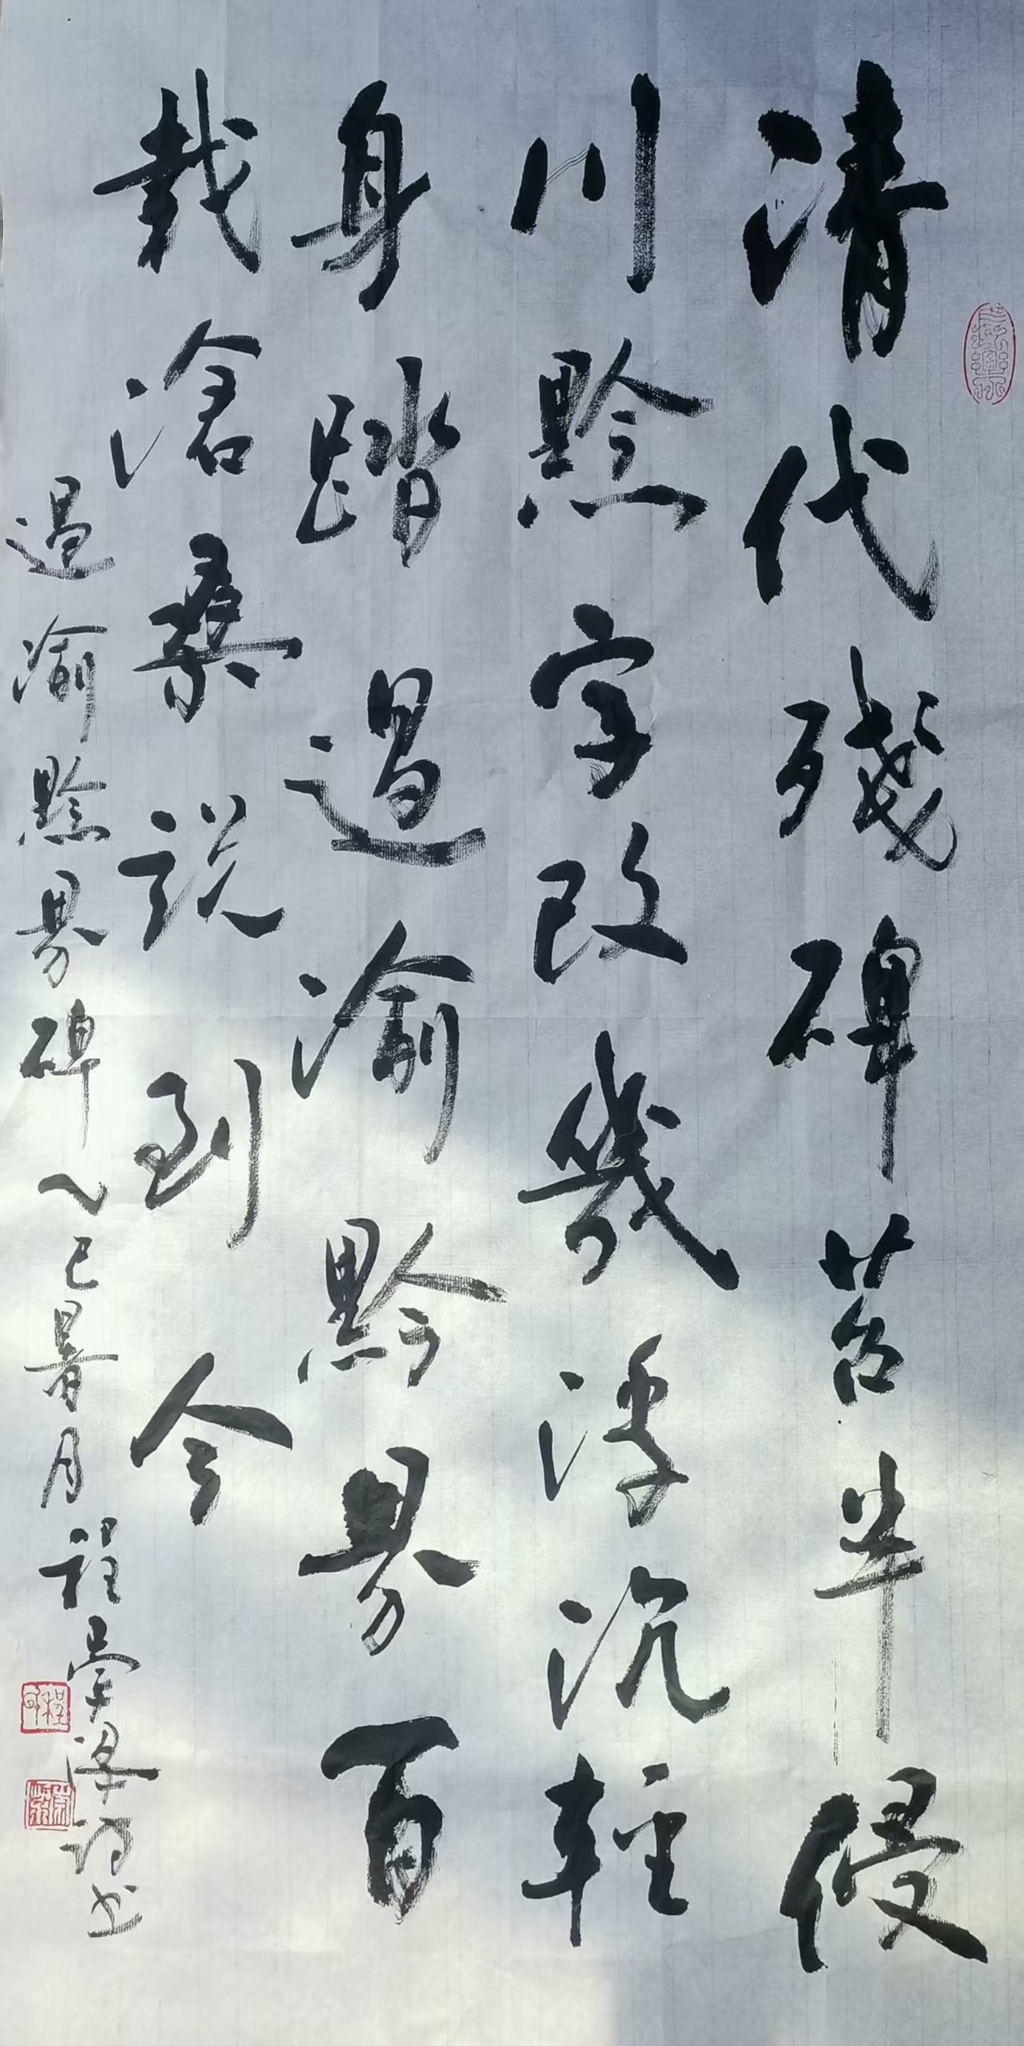 清代殘碑苔半侵
川黔字改幾浮沉輕
身踏過渝黔界百
載滄桑說到今
過渝黔界碑乙巳暑月程